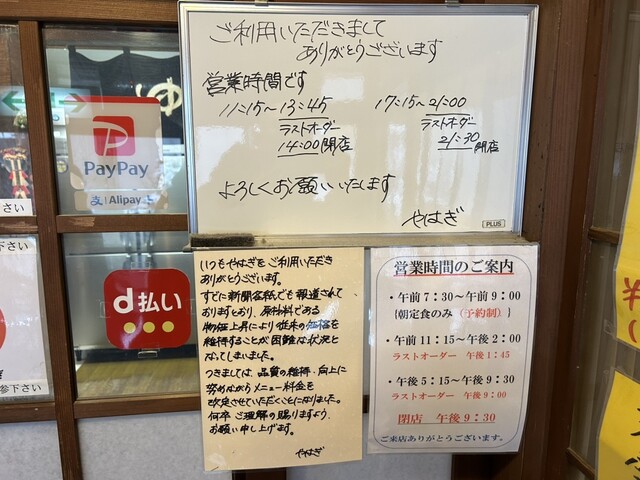 ご利用いただきまして
ありがとうございます
営業時間です
11:15～13:45
ラストオーダー
14:00閉店
17:15～21:00
ラストオーダー
21:30閉店
よろしくお願いいたします
やはぎ
PLUS
PayPay
Alipay
d払い
ださい
ださい
参下さい
いつもやはぎをご利用いただき
ありがとうございます。
すでに新聞各紙でも報道されて
おりますとおり、原材料である
物価上昇により従来の価格を
維持することが困難な状況と
なってしまいました。
つきましては、品質の維持、向上に
努めながらメニュー料金を
改定させていただくことになりました。
何卒ご理解の賜りますよう、
お願い申し上げます。
やはぎ
営業時間のご案内
・午前7:30～午前9:00
{朝定食のみ（予約制）}
・午前11:15～午後2:00
ラストオーダー 午後1:45
・午後5:15～午後9:30
ラストオーダー 午後9:00
閉店 午後9:30
ご来店ありがとうございます。